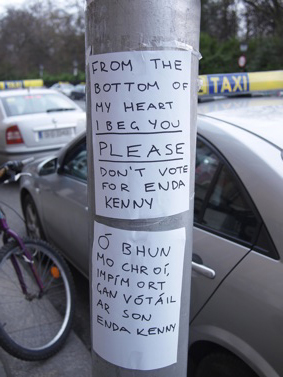 FROM THE
BOTTOM OF
MY HEART
I BEG YOU
PLEASE
DON'T VOTE
FOR ENDA
KENNY
Ó BHUN
MO CHROÍ,
IMPÍM ORT
GAN VÓTÁIL
AR SON
ENDA KENNY
TAXI